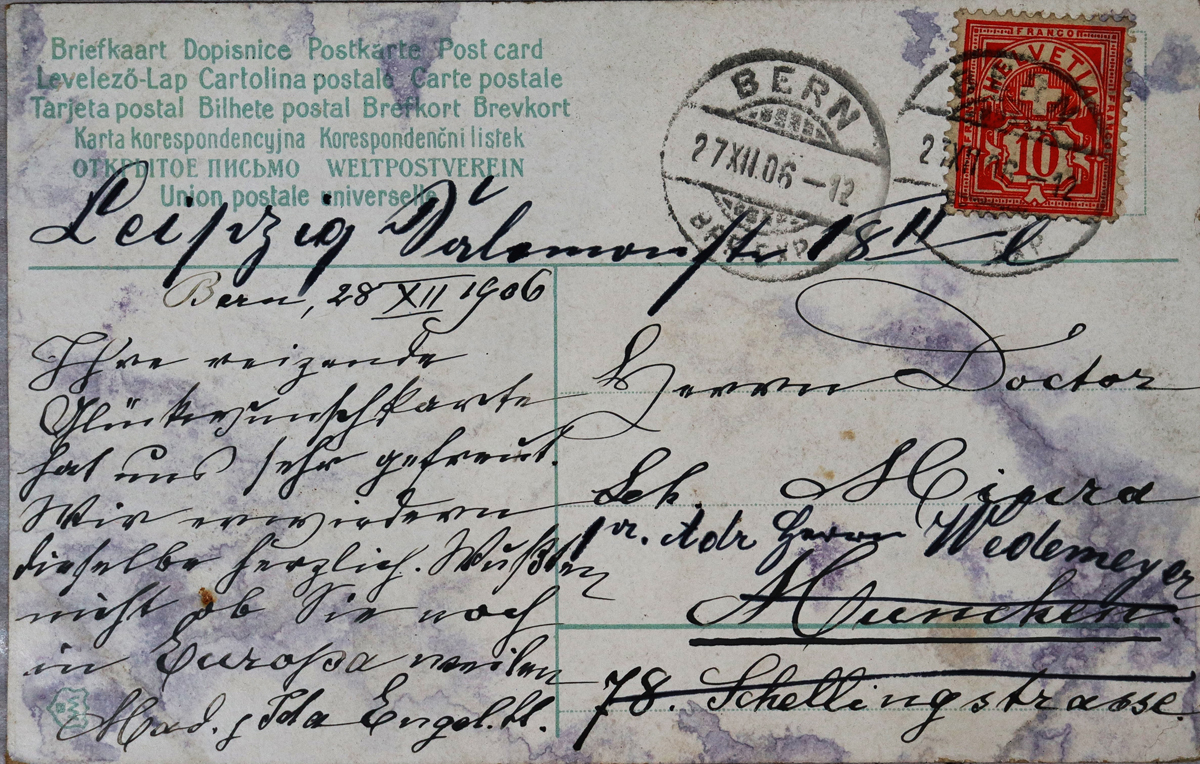 Briefkaart Dopisnice Postkarte Post card
Levelező-Lap Cartolina postale Carte postale
Tarjeta postal Bilhete postal Brefkort Brevkort
Karta korespondencyjna Korespondenční listek
ОТКРЫТОЕ ПИСЬМО WELTPOSTVEREIN
Union postale universelle
BERN
27 XII.06 –12
FRANCO
HELVETIA
10
Leipzig Salomonstr 18 II
Bern, 28 XII 1906
Ihre reizende
Glückwunschkarte
hat uns sehr gefreut.
Wir erwiedern
dieselbe herzlich. Wußten
nicht ob Sie noch
in Europa weilen
Mad. Ida Engel
Herrn Doctor
Sch. Mizra
pr. Adr Herrn Wedemeyer
München.
78. Schellingstrasse.